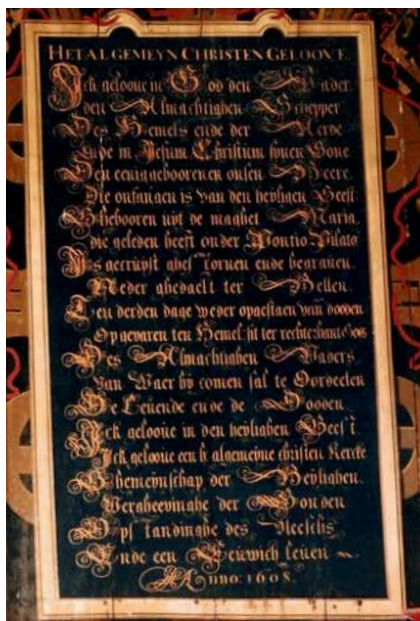 HET ALGEMEYN CHRISTEN GELOOVE.
Ick geloove in God den Vader
den Almachtighen Schepper
Des Hemels ende der Aerde
Ende in Jesum Christum synen Sone
Den eeniggeboorenen onsen Heere.
Die ontfangen is van den heyligen Geest
Ghebooren uyt de maghet Maria.
die geleden heeft onder Pontio Pilato
Is gecruyst ghestorven ende begraven.
Neder ghedaelt ter Hellen.
Ten derden dage weder opgestaen van dooden
Opgevaren ten Hemel sit ter rechterhant Gods
Des Almachtighen Vaders
van Waer hy comen sal te Oordeelen
De Levende ende de Dooden
Ick geloove in den heylighen Geest
Ick geloove een h algemeyne christen Kercke
Ghemeynschap der Heylighen.
Vergheevinghe der Sonden
Opstandinghe des Vleeschs
Ende een Eeuwich leven
Anno. 1608.